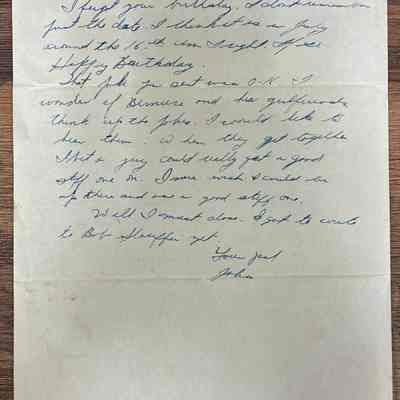 I forgot your birthday. I dont remember
just the date. I think it is in July
around the 16th am I right. If so
Happy Birthday.
That joke you sent was O.K. I
wonder if Bernice and her girlfriends
think up the jokes. I would like to
hear them. When they get together
I bet a guy could really get a good
stiff one on. I sure wish I could be
up there and use a good stiff one.
Well I must close. I got to write
to Bob yet.
Your pal
John